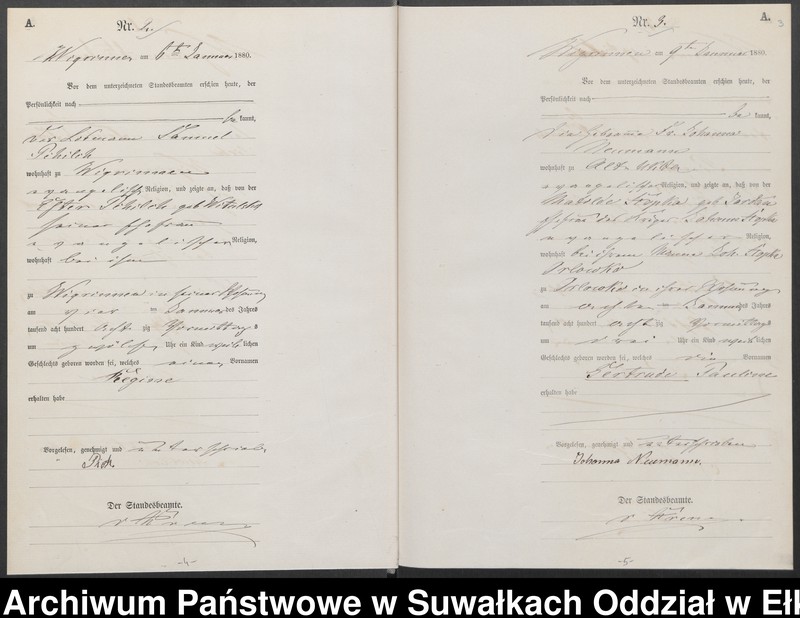 A.
Nr. 2.
Wigrinnen am 6ten Januar 1880.
Vor dem unterzeichneten Standesbeamten erschien heute, der
Persönlichkeit nach
be kannt,
Samuel
wohnhaft zu Wigrinnen
evangelischer Religion, und zeigte an, daß von der
geb.
seiner Ehefrau
evangelischer Religion,
wohnhaft bei ihm
zu Wigrinnen in seiner Wohnung
am vier ten Januar des Jahres
tausend acht hundert acht zig Vormittags
um zwölf Uhr ein Kind weiblichen
Geschlechts geboren worden sei, welches einen Vornamen
Regine
erhalten habe
Vorgelesen, genehmigt und unterschrieben
Der Standesbeamte.
-4-
Nr. 3.
A.
3
Wigrinnen am 9ten Januar 1880.
Vor dem unterzeichneten Standesbeamten erschien heute, der
Persönlichkeit nach
be kannt,
die Hebamme Fr. Johanna
Neumann
wohnhaft zu Alt Ukta
evangelischer Religion, und zeigte an, daß von der
geb.
Ehefrau des Johann
evangelischer Religion,
wohnhaft bei ihrem Manne Joh.
Orlowko
zu Orlowko in ihrer Wohnung
am achten Januar des Jahres
tausend acht hundert acht zig Vormittags
um drei Uhr ein Kind weiblichen
Geschlechts geboren worden sei, welches Vornamen
Gertrude Pauline
erhalten habe
Vorgelesen, genehmigt und unterschrieben
Johanna Neumann.
Der Standesbeamte.
-5-
Archiwum Państwowe w Suwałkach Oddział w Ełk